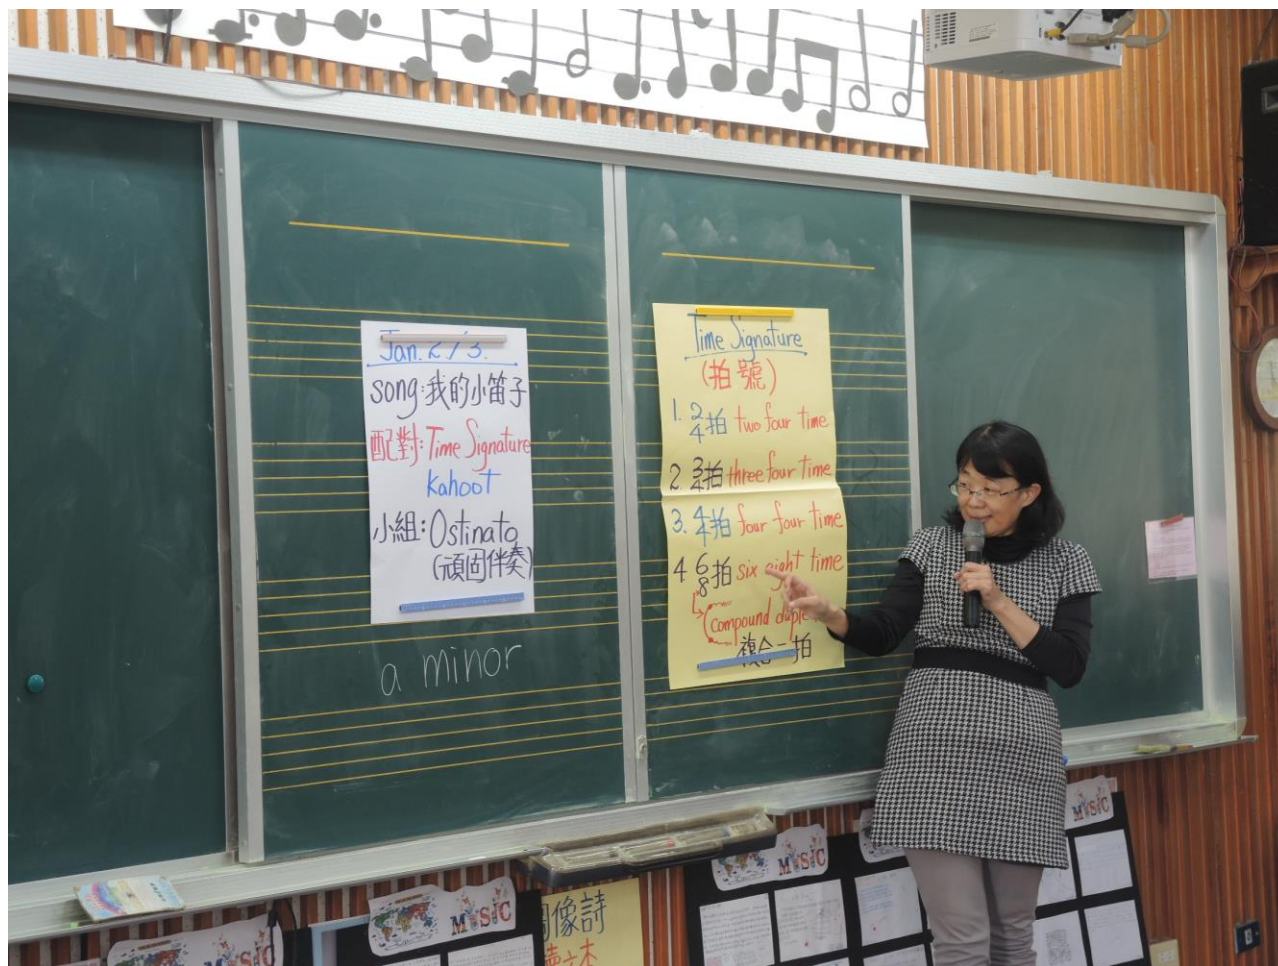 Jan. 2/3.
song:我的小笛子
配對:Time Signature
kahoot
小組:Ostinato
(頑固伴奏)
a minor
Time Signature
(拍號)
1. 2/4拍 two four time
2. 3/4拍 three four time
3. 4/4拍 four four time
4 6/8拍 six eight time
compound duple
複合二拍
MUSIC
MUSIC
MUSIC
圖像詩